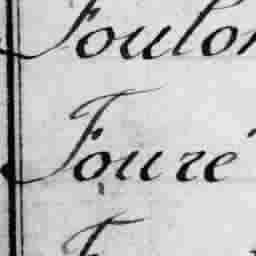 Foulon
Fouré